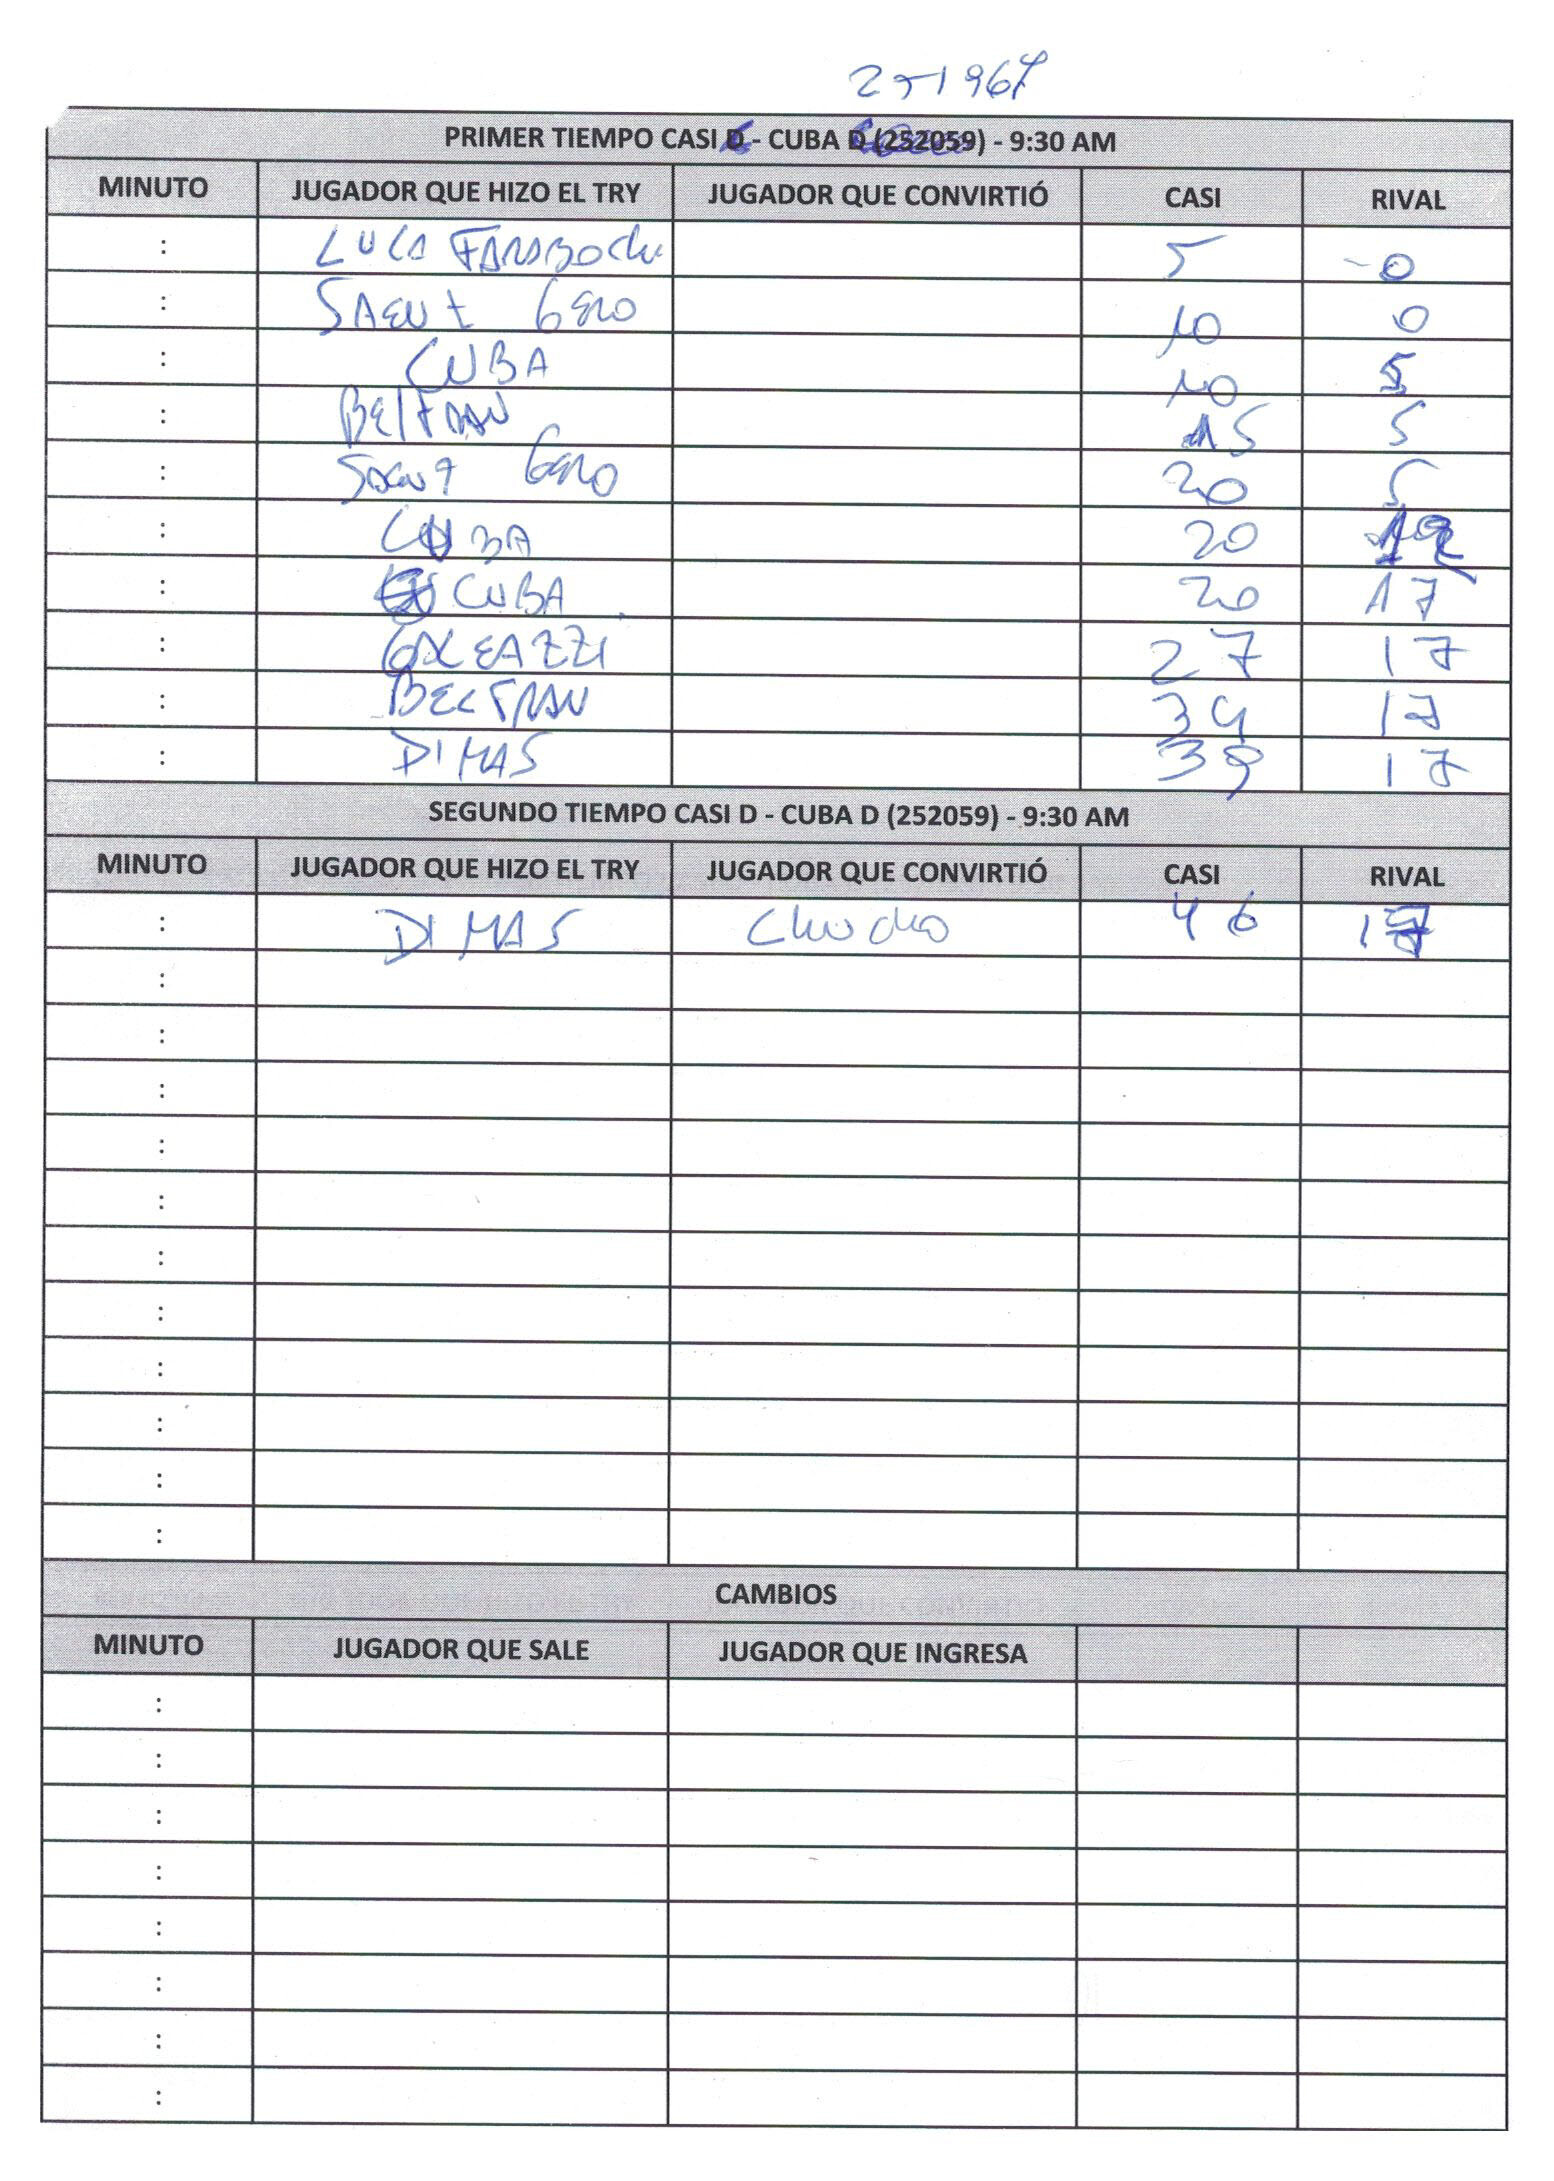 251967
PRIMER TIEMPO CASI D - CUBA D (252059) - 9:30 AM
MINUTO JUGADOR QUE HIZO EL TRY JUGADOR QUE CONVIRTIÓ CASI RIVAL
: LUCA 5 0
: SAENZ GERO 10 0
: CUBA 10 5
: BELTRAN 15 5
: SAENZ GERO 20 5
: CUBA 20 12
: CUBA 20 17
: GALEAZZI 27 17
: BELTRAN 34 17
: DIMAS 39 17
SEGUNDO TIEMPO CASI D - CUBA D (252059) - 9:30 AM
MINUTO JUGADOR QUE HIZO EL TRY JUGADOR QUE CONVIRTIÓ CASI RIVAL
: DIMAS 46 17
:
:
:
:
:
:
:
:
:
:
:
CAMBIOS
MINUTO JUGADOR QUE SALE JUGADOR QUE INGRESA
:
:
:
:
:
:
:
: